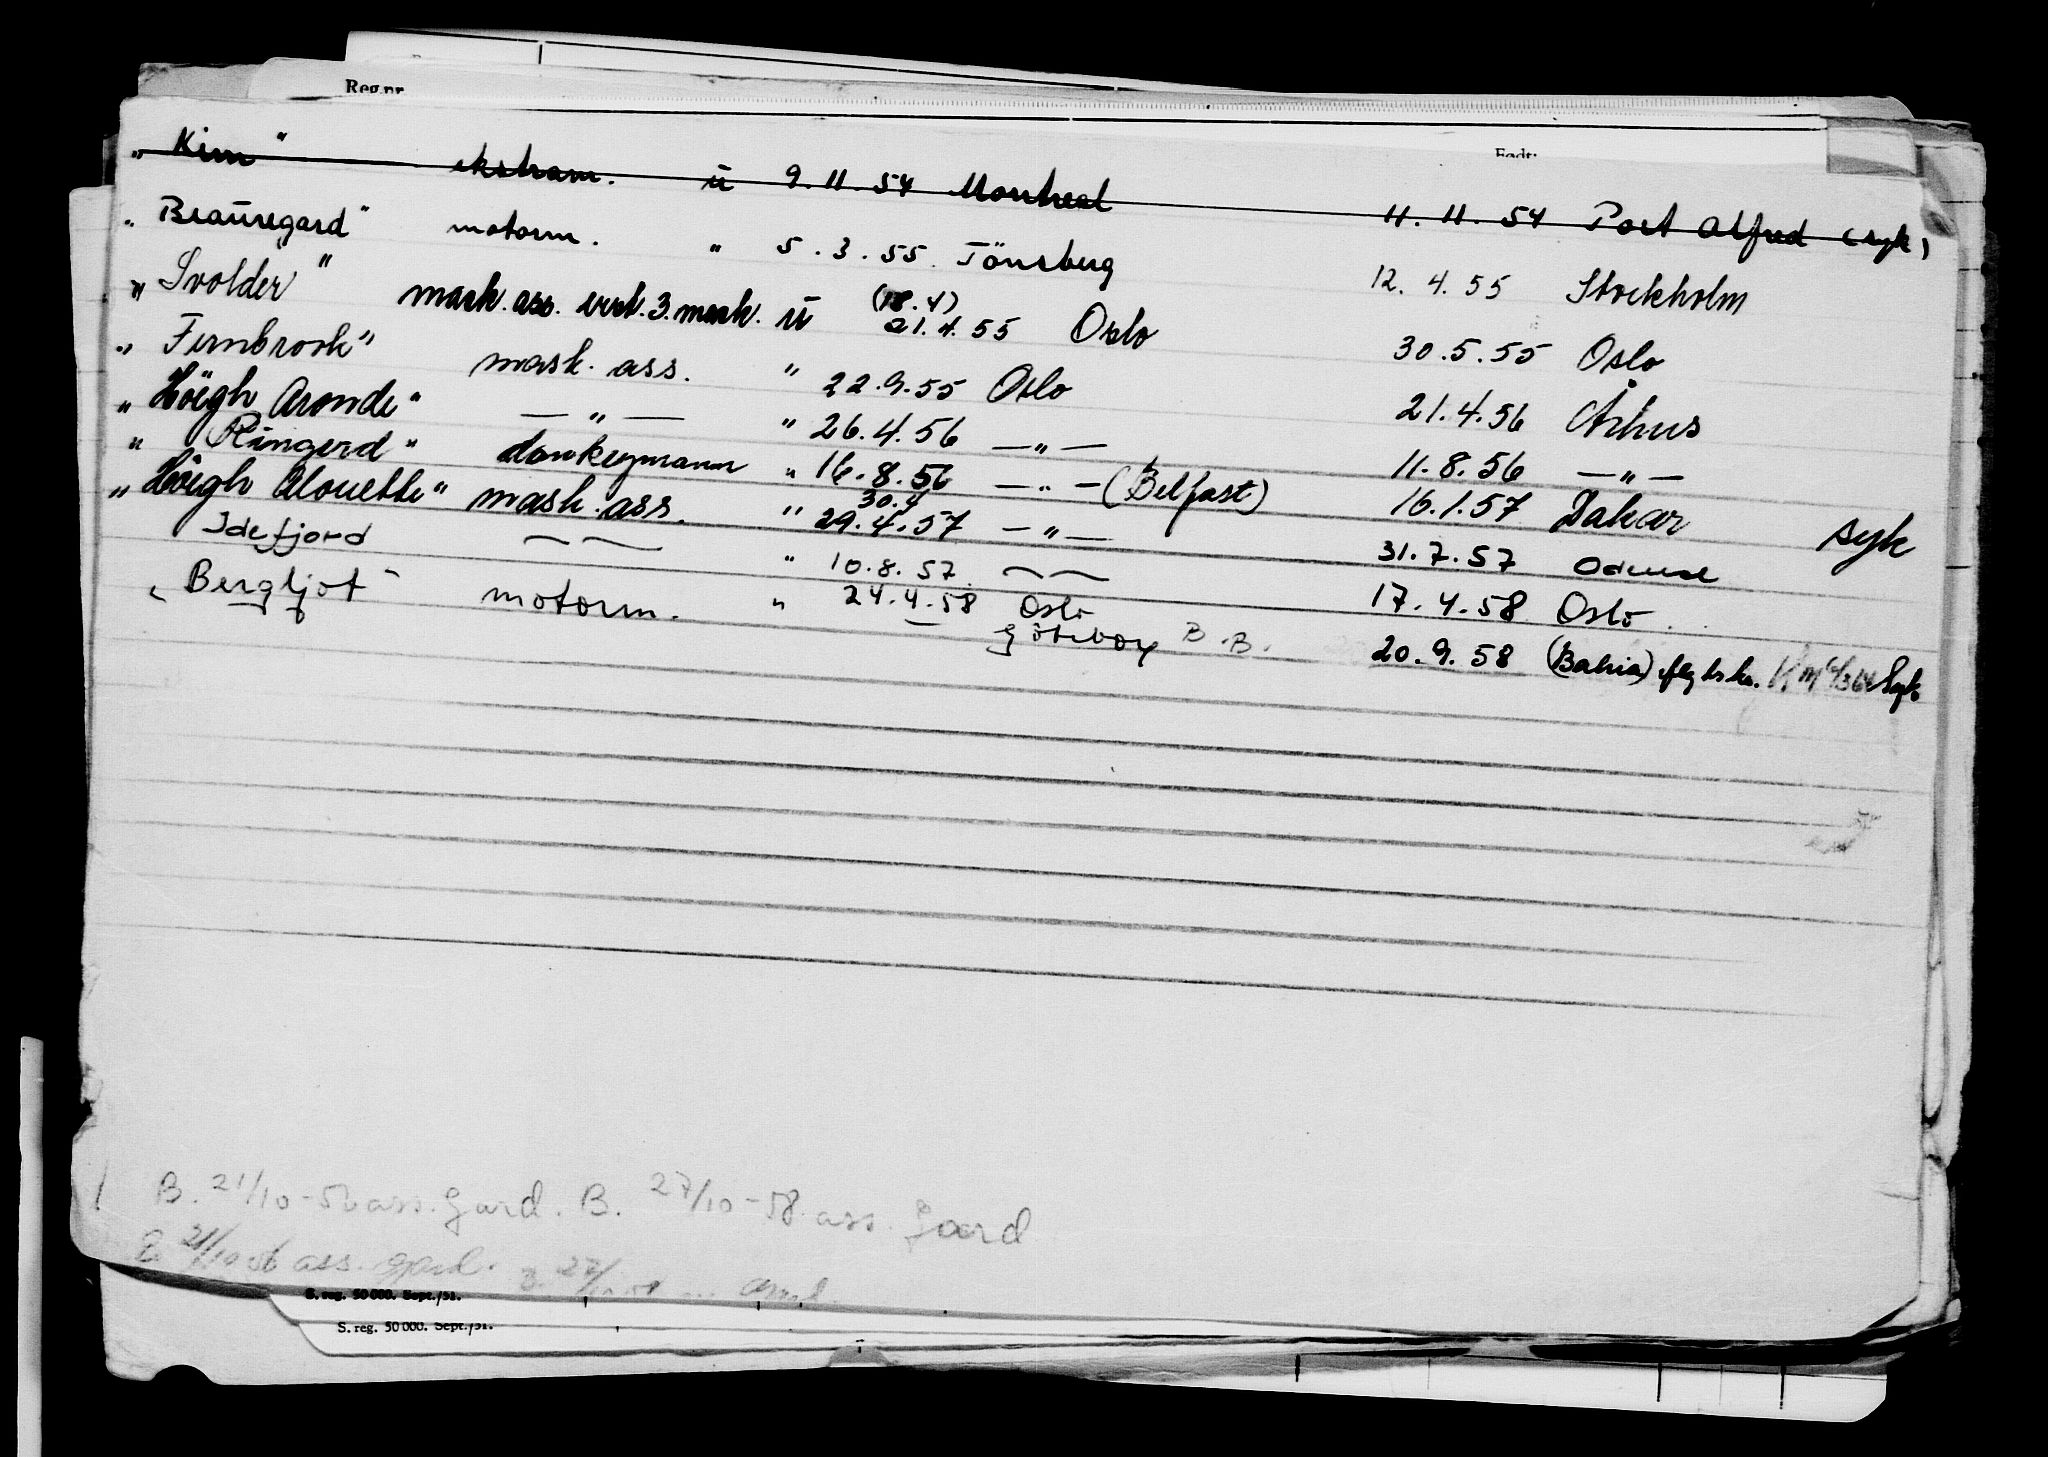 Reg.nr.
Født:
„Kim" ekstram. u 9.11.54 Montreal 11.11.54 Port Alfred (syk)
„Beauregard" motorm. " 5.3.55. Tönsberg 12.4.55 Stockholm
„Svolder" mask. ass. 3. mask. u (18.4) 21.4.55 Oslo 30.5.55 Oslo
„Fernbrook" mask. ass. " 22.9.55 Oslo 21.4.56 Århus
„Höegh Aronde" — " — " 26.4.56 — " — 11.8.56 — " —
„Ringerd" donkeymann " 16.8.56 — " — (Belfast) 16.1.57 Dakar syk
„Höegh Alouette" mask. ass. " 30.4 29.4.57 — " — 31.7.57 Odense
Idefjord — — " 10.8.57. — — 17.4.58 Oslo.
„Bergljot" motorm. " 24.4.58 Oslo Göteborg B.B. 20.9.58 (Bahia) Syk
B. 21/10-56 ass. Gard. B. 27/10-58 ass. Gard
B 21/10 56 ass. gard. B. 27/
S. reg. 50 000. Sept./51.
S. reg. 50 000. Sept./51.